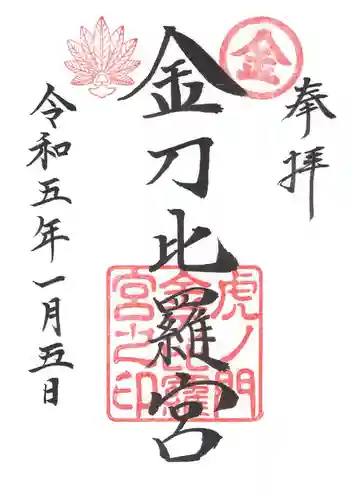 奉拝
金
金刀比羅宮
虎ノ門
金比羅
宮之印
令和五年一月五日